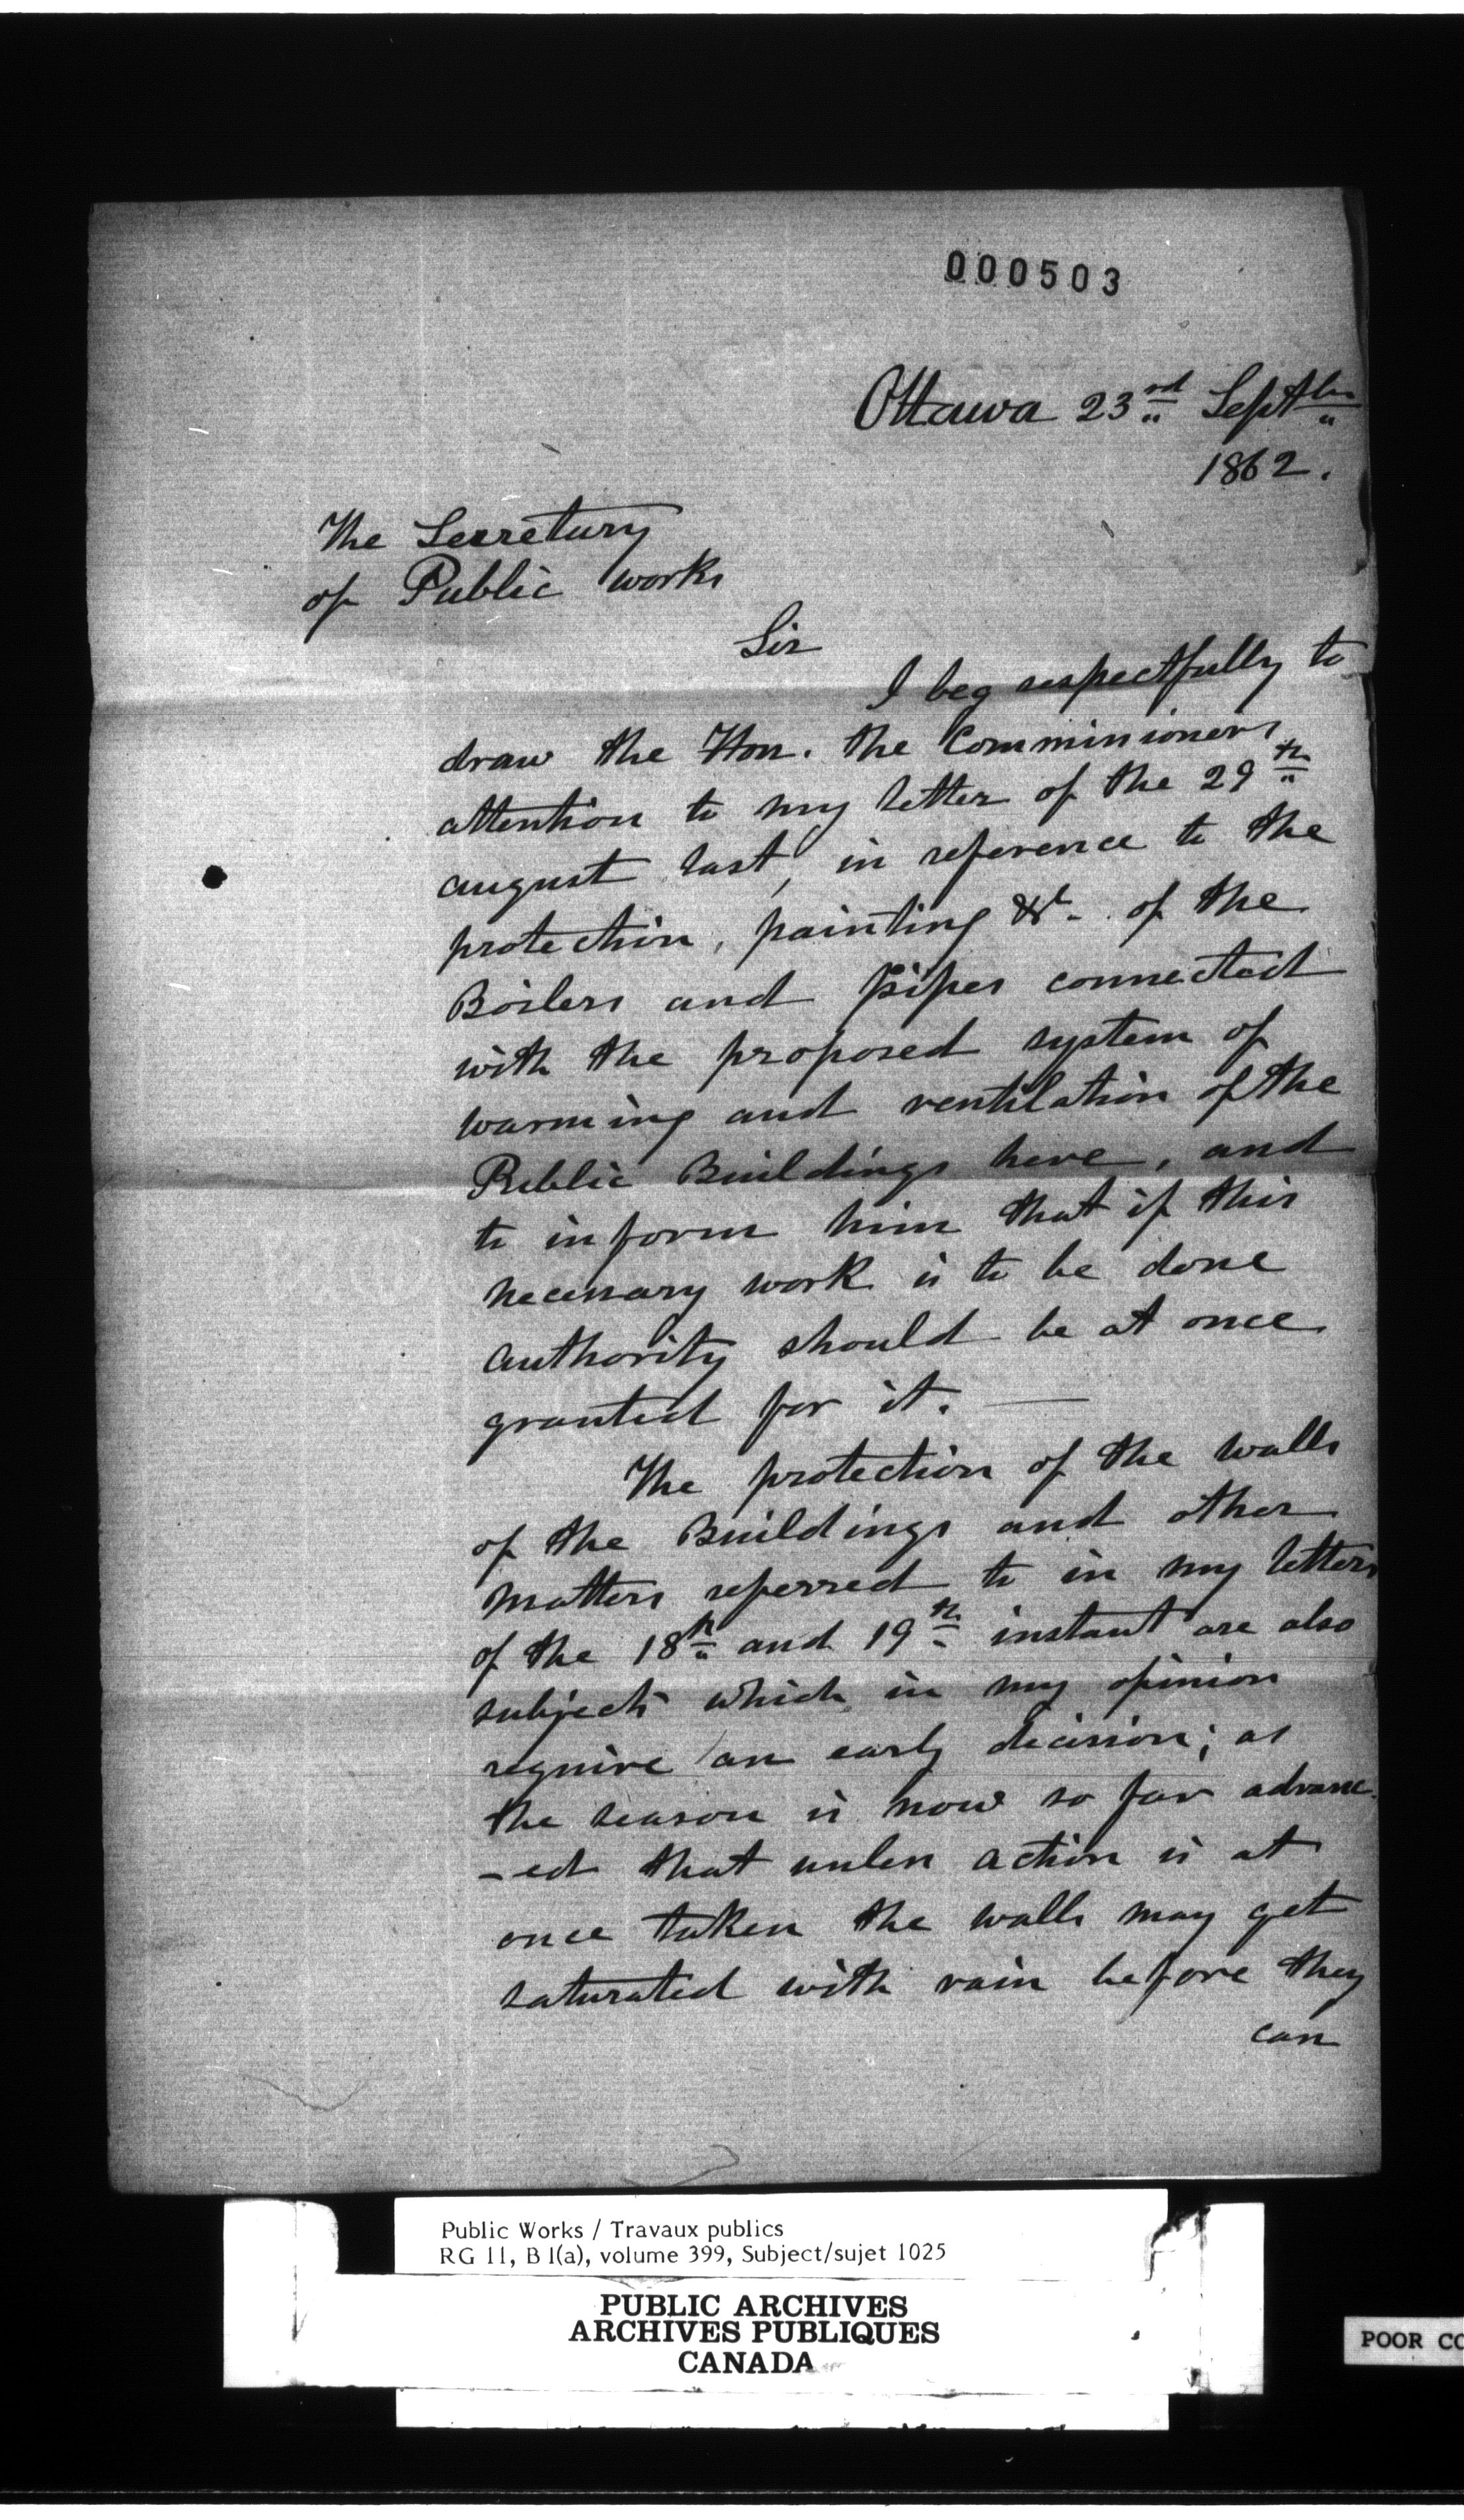 000503
Ottawa 23rd Septber
1862.
The Secretary
of Public works
Sir
I beg respectfully to
draw the Hon. the Commissioners
attention to my letter of the 29th
august last, in reference to the
protection, painting &c. of the
Boilers and Pipes connected
with the proposed system of
warming and ventilation of the
Public Buildings here, and
to inform him that if this
necessary work is to be done
authority should be at once
granted for it. —
The protection of the walls
of the Buildings and other
matters referred to in my letters
of the 18th and 19th instant are also
subjects which in my opinion
require an early decision; as
the season is now so far advanc-
-ed that unless action is at
once taken the walls may get
saturated with rain before they
can
Public Works / Travaux publics
RG 11, B1(a), volume 399, Subject/sujet 1025
PUBLIC ARCHIVES
ARCHIVES PUBLIQUES
CANADA
POOR CO